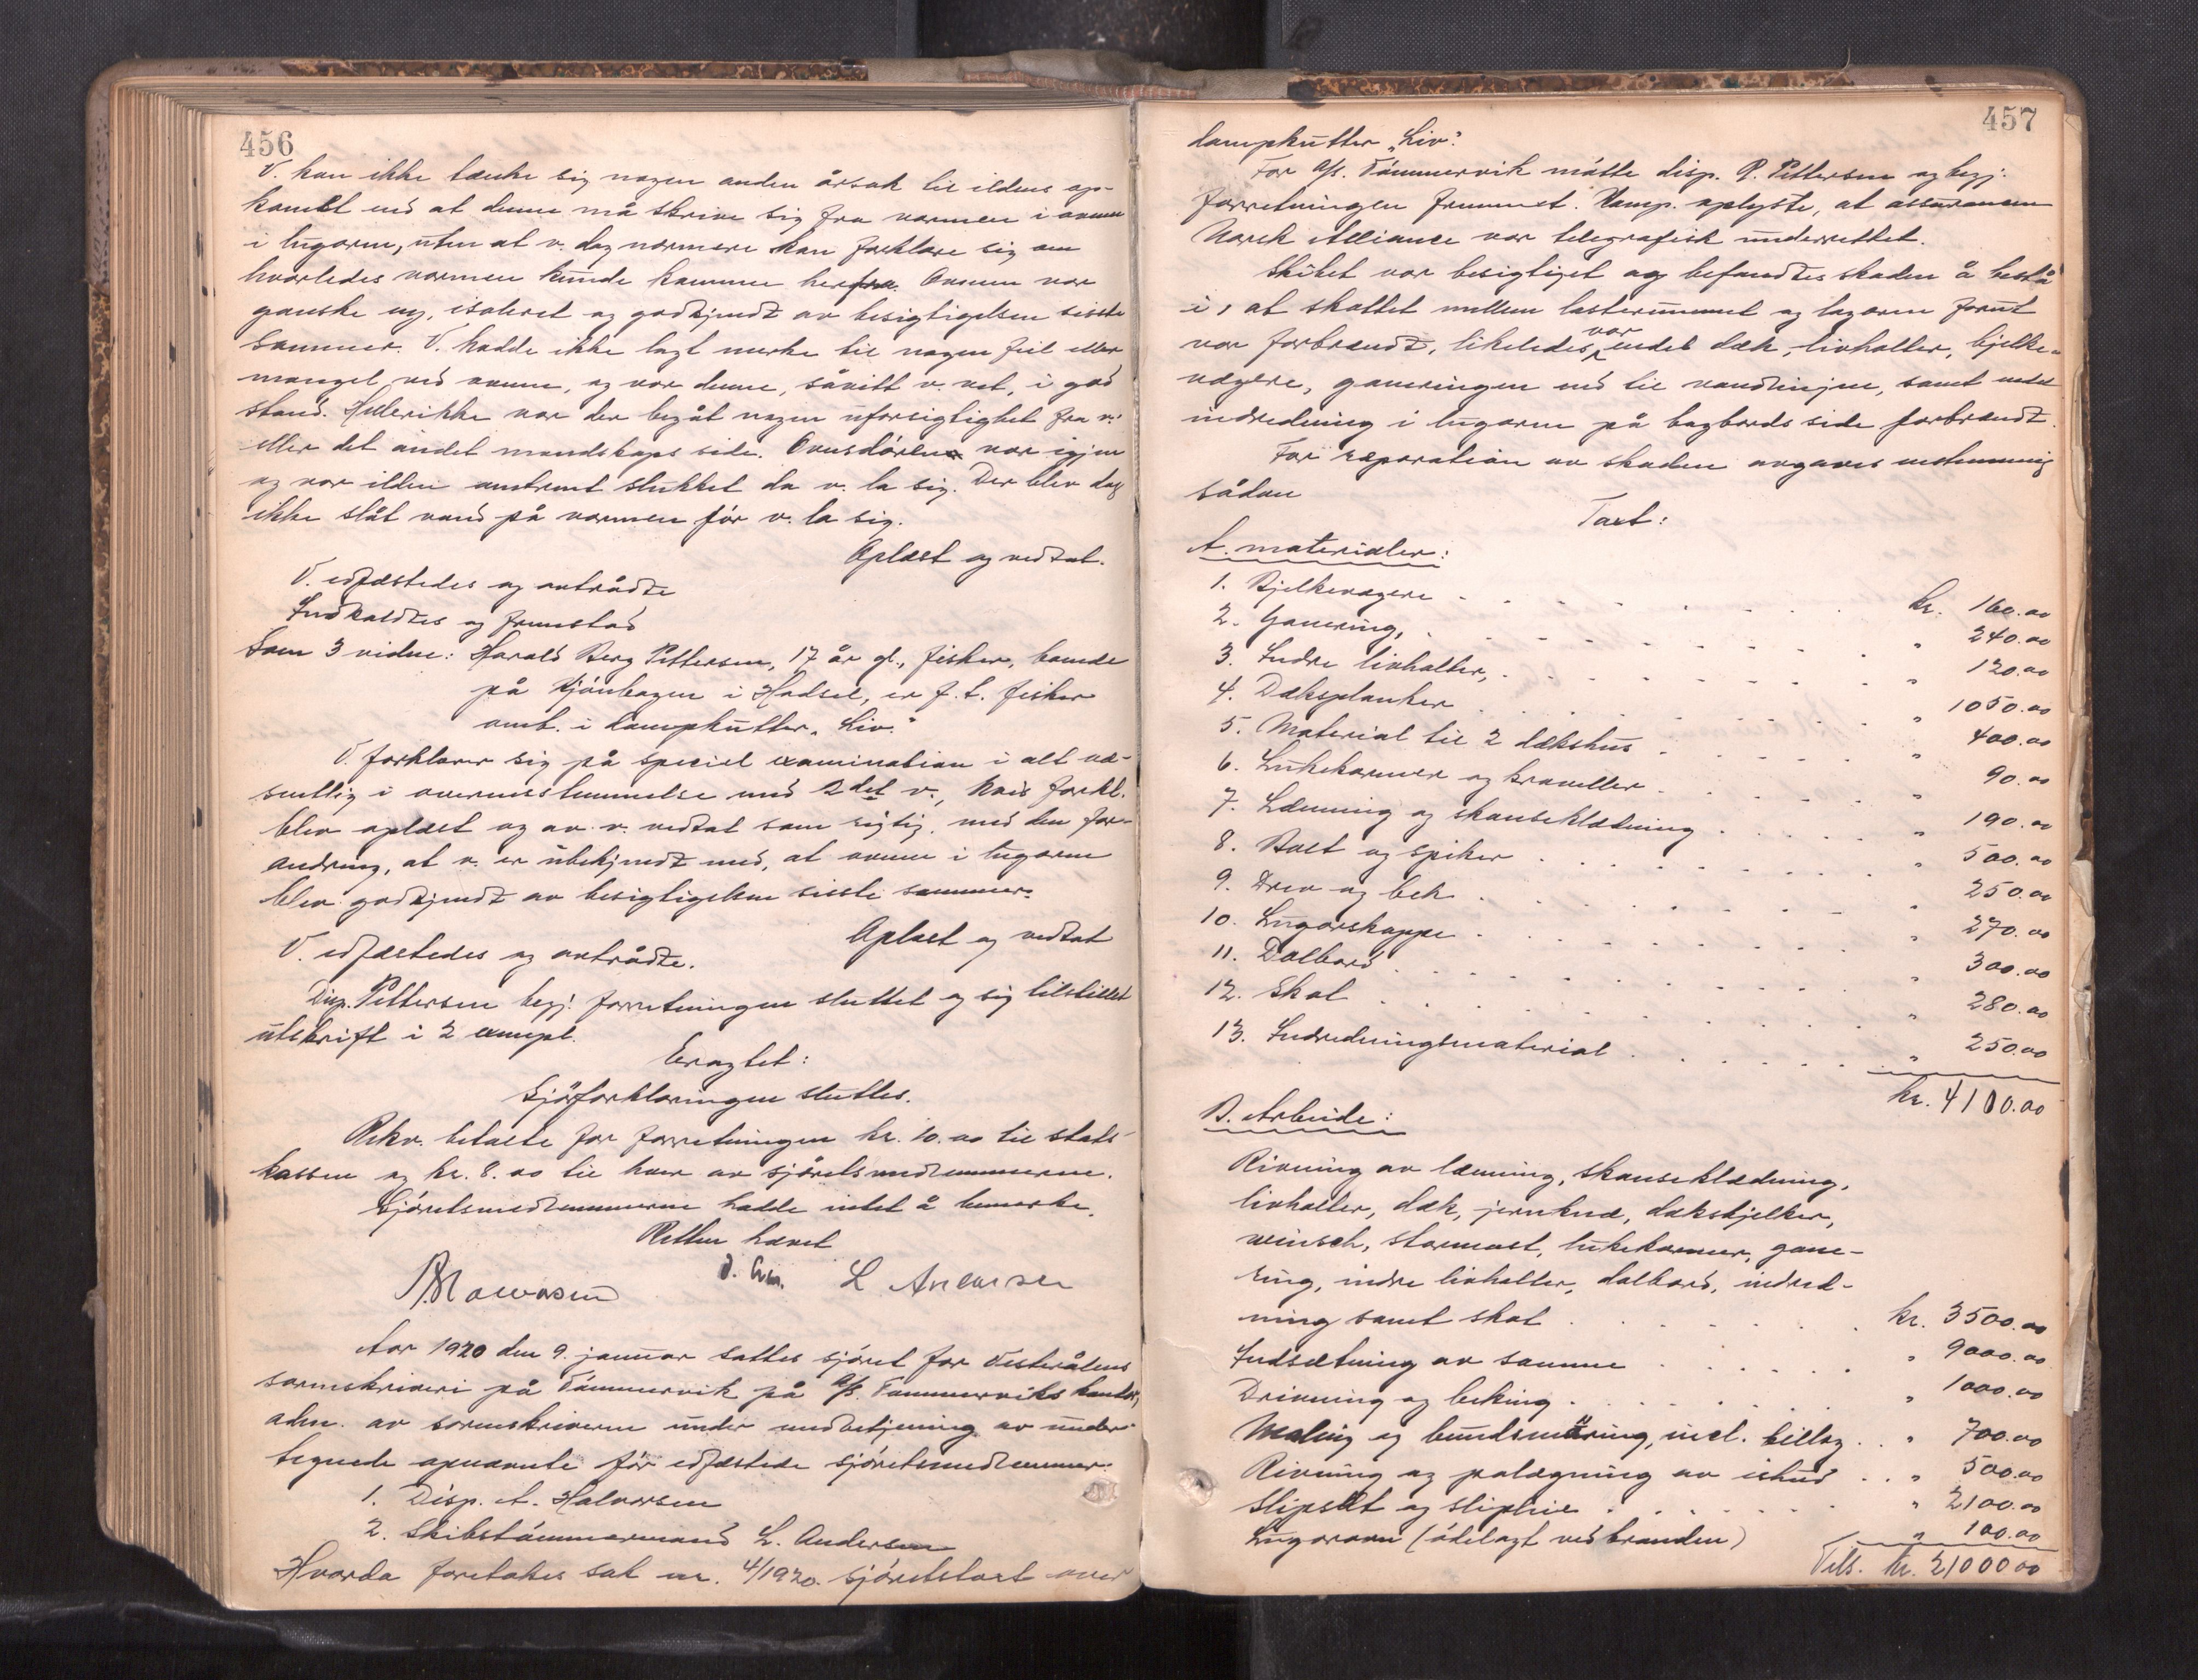 456
V. kan ikke tænke sig nogen anden årsak til ildens op-
komst end at denne må skrive sig fra varmen i ovnen
i lugaren, uten at v. dog nærmere kan forklare sig om
hvorledes varmen kunde komme herfra. Ovnen var
ganske ny, isoleret og godkjendt av besigtigelsen siste
sommer. V. hadde ikke lagt merke til nogen feil eller
mangel ved ovnen, og var denne, såvitt v. vet, i god
stand. Heller ikke var der begåt nogen uforsigtighet fra v.'
eller det andet mandskaps side. Ovnsdören var igjen
og var ilden omtrent slukket da v. la sig. Der blev dog
ikke slåt vand på varmen för v. la sig.
Oplæst og vedtat.
V. edfæstedes og fratrådte
Indkaldtes og fremstod
Som 3 vidne: Harald Berg Pettersen, 17 år gl., fisker, boende
på Kjönhagen i Hadsel, er f. t. fisker
omb. i dampkutter "Liv."
V. forklarer sig på speciel examination i alt væ-
sentlig i overensstemmelse med 2det v., hvis forkl.
blev oplæst og av v. vedtat som rigtig, med den for-
andring, at v. er ubekjendt med, at ovnen i lugaren
blev godkjendt av besigtigelsen siste sommer.
Oplæst og vedtat
V. edfæstedes og fratrådte.
Disp. Pettersen begj. forretningen sluttet og sig tilstillet
utskrift i 2 exempl.
Eragtet:
Sjöforklaringen sluttes.
Rekv. betalte for forretningen kr. 10.00 til stats-
kassen og kr. 8.00 til hver av sjöretsmedlemmerne.
Sjöretsmedlemmerne hadde intet å bemerke.
Retten hævet
L Andersen
Aar 1920 den 9. januar sattes sjöret for Vesterålens
sorenskriveri på Tömmervik på A/S. Tömmerviks kontor,
adm. av sorenskriveren under medbetjening av under-
tegnede opnævnte för edfæstede sjöretsmedlemmer:
1. Disp. A. Halvorsen
2. Skibstömmermand L. Andersen
Hvorda foretokes sak nr. 4/1920. Sjöretstakst over
457
dampkutter "Liv".
For A/S. Tömmervik mötte disp. P. Pettersen og begj.
forretningen fremmet. Komp. oplyste, at assurancen
Norsk Alliance var telegrafisk underrettet.
Skibet var besigtiget og befandtes skaden å bestå
i, at skottet mellem lasterummet og lugaren forut
var forbrændt, likeledes var endel dæk, livholter, bjelke-
vægere, garneringen ned til vandlinjen, samt endel
indredning i lugaren på bagbords side forbrændt.
For reparation av skaden avgaves enstemmig
sådan
Takst:
A. materialer:
1. Bjelkevægere . . . . . . . kr. 160.00
2. Garnering, . . . . . . . " 240.00
3. Indre livholter, . . . . . . . " 120.00
4. Dæksplanker . . . . . . . " 1050.00
5. Material til 2 dækshus . . . . . " 400.00
6. Lukekarmer og kraveller . . . . . " 90.00
7. Lænning og skanseklædning . . . . " 190.00
8. Bolt og spiker . . . . . . . " 500.00
9. Drev og bek . . . . . . . " 250.00
10. Lugarskappe . . . . . . . " 270.00
11. Dolbord . . . . . . . " 300.00
12. Skot . . . . . . . " 280.00
13. Indredningsmaterial . . . . . " 250.00
kr. 4100.00
B. Arbeide:
Rivning av lænning, skanseklædning,
livholter, dæk, jernknæ, dæksbjelker,
winsch, stormast, lukekarmer, garne-
ring, indre livholter, dolbord, indred-
ning samt skot . . . . . . kr. 3500.00
Indsætning av samme . . . . " 9000.00
Drivning og beking . . . . . " 1000.00
Maling og bundsmöring, incl. tillæg . . " 700.00
Rivning og pålægning av ishud . . " 500.00
Slipsæt og slipleie . . . . . " 2100.00
Lugarovn (ödelagt ved branden) " 100.00
Tils. kr. 21000.00